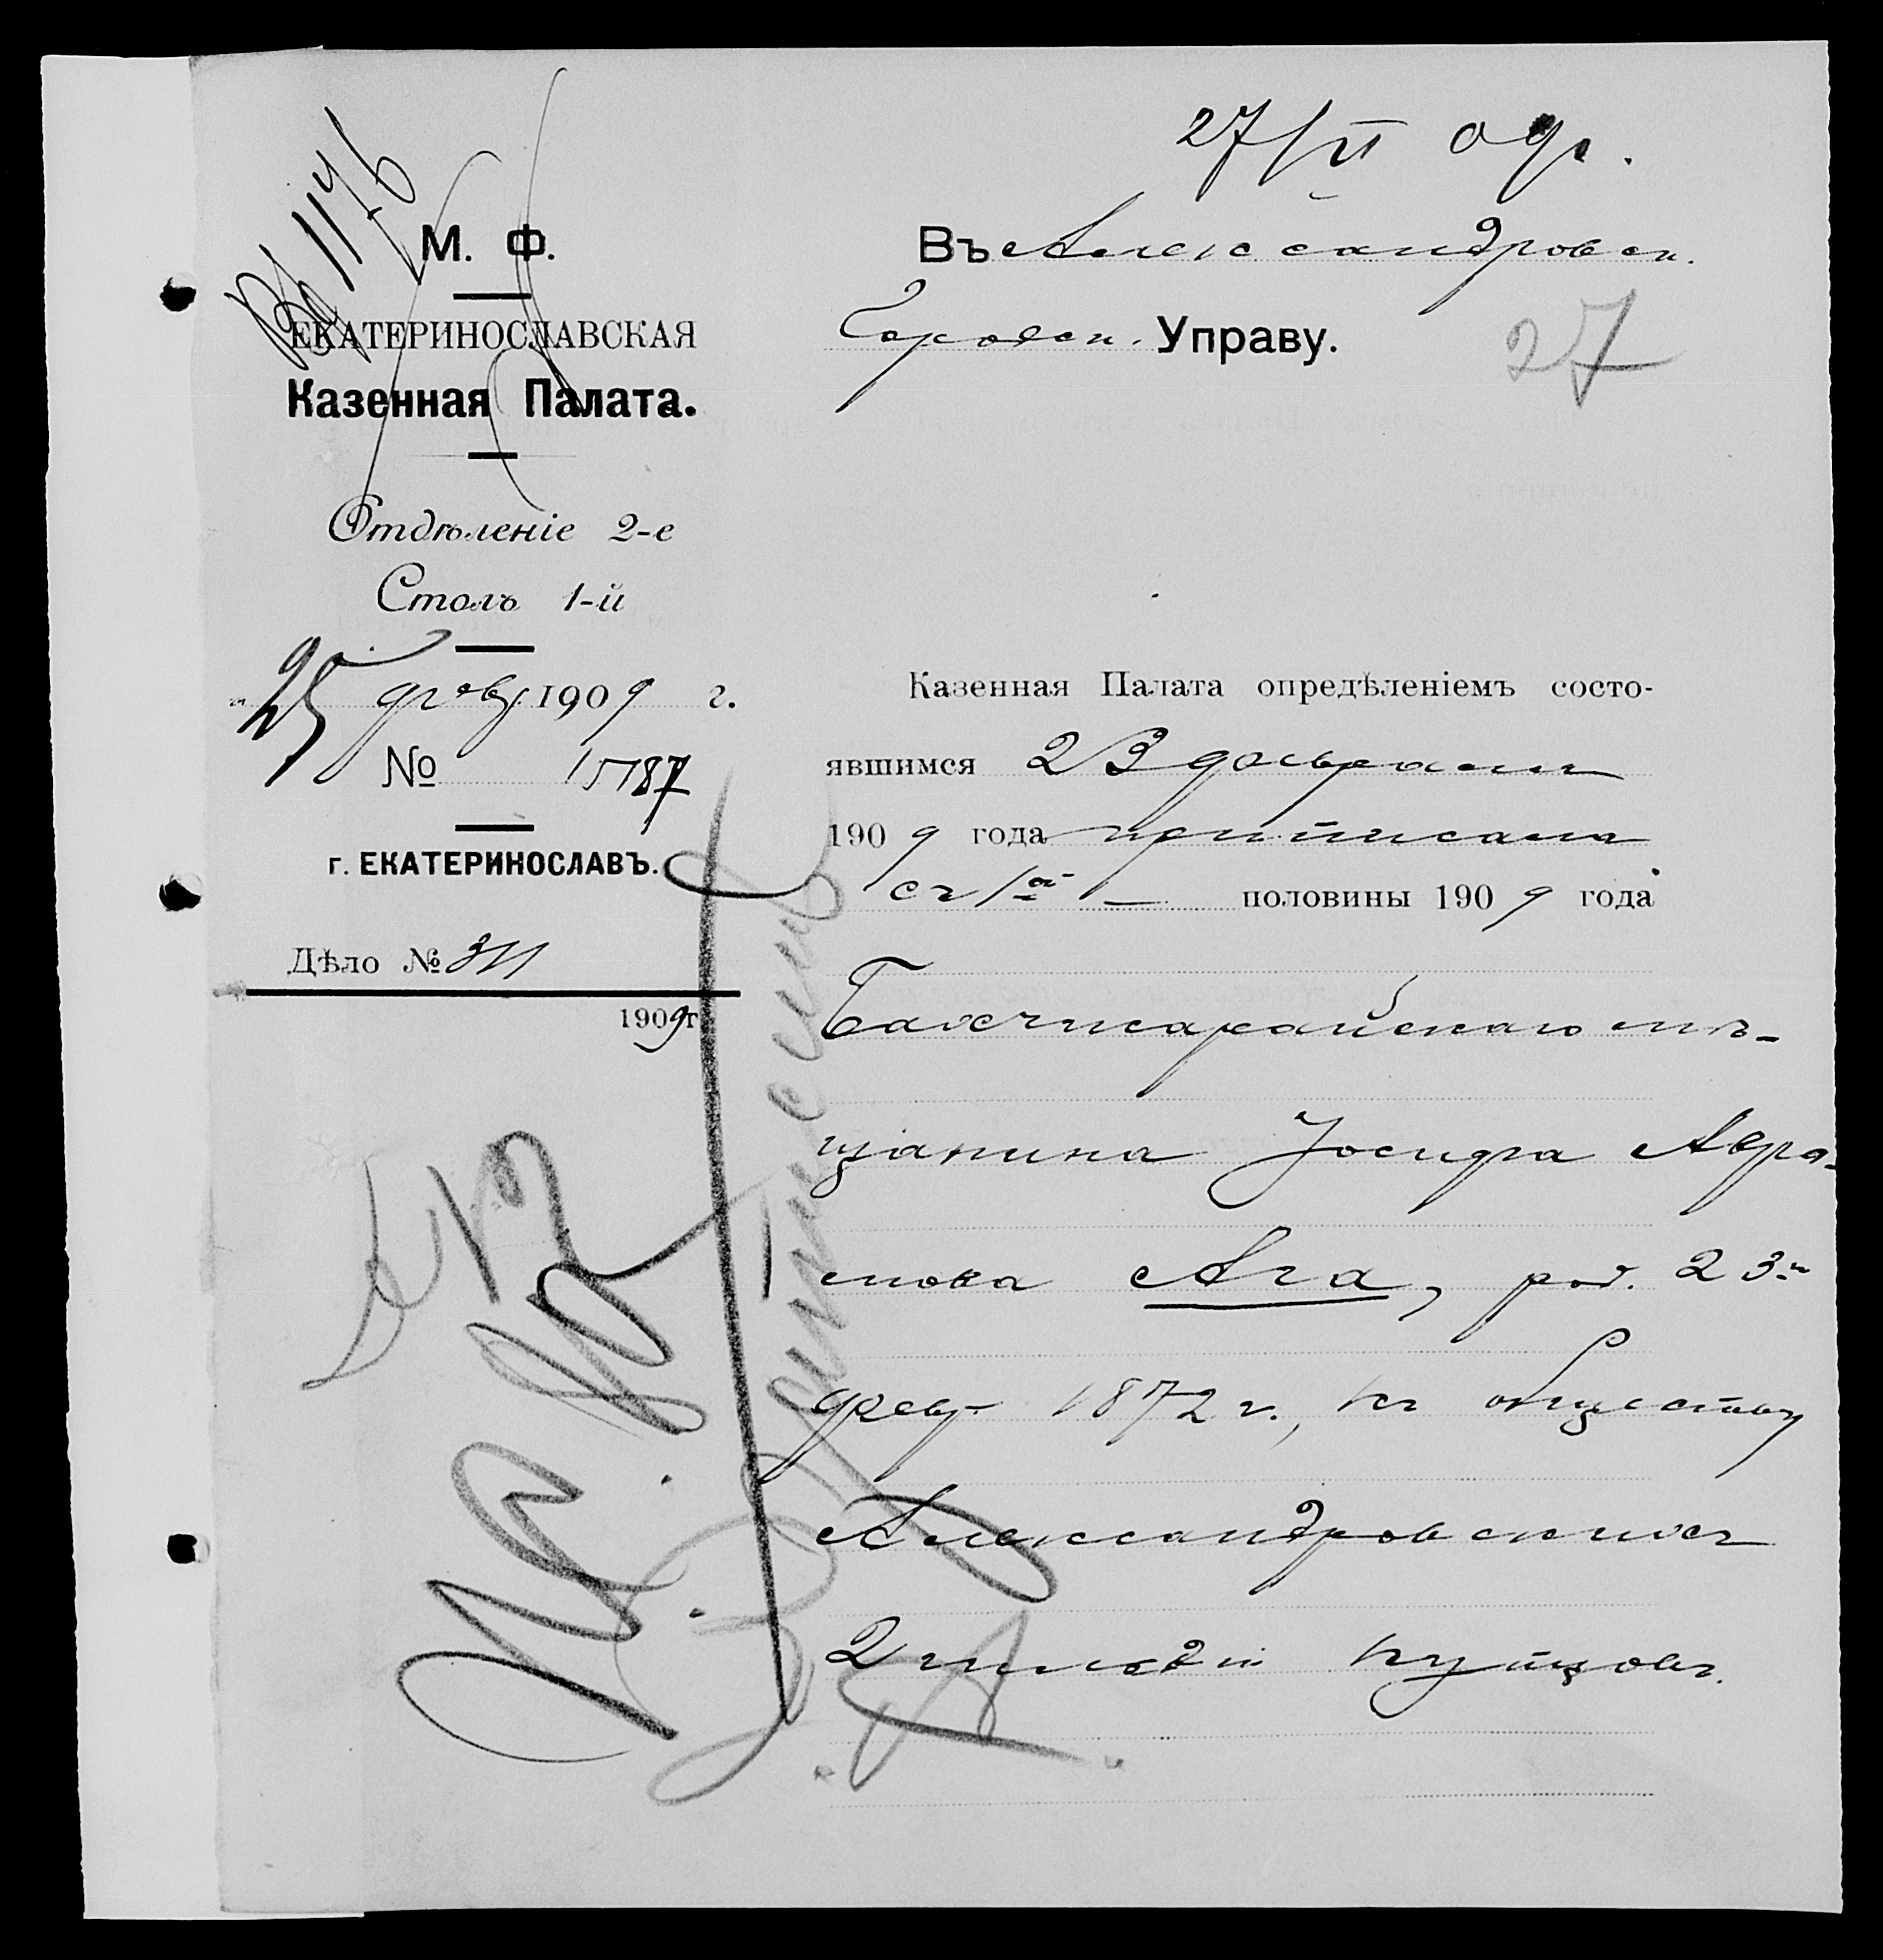 27/VI 09 г.
Вх 1176
М. Ф.
ЕКАТЕРИНОСЛАВСКАЯ
Казенная Палата.
Отдѣленіе 2-е
Столъ 1-й
25 февр. 1909 г.
№ 15187
г. ЕКАТЕРИНОСЛАВЪ.
Дѣло № 311
1909 г.
Въ Александровск.
Городск. Управу.
27
Казенная Палата опредѣленіемъ состо-
явшимся 23 февраля
1909 года причислила
съ 1ой половины 1909 года
Бахчисарайскаго мѣ-
щанина Іосифа Авра-
мова Ага, род. 23го
февр 1872 г., къ обществу
Александровскихъ
2 гильдіи купцовъ.